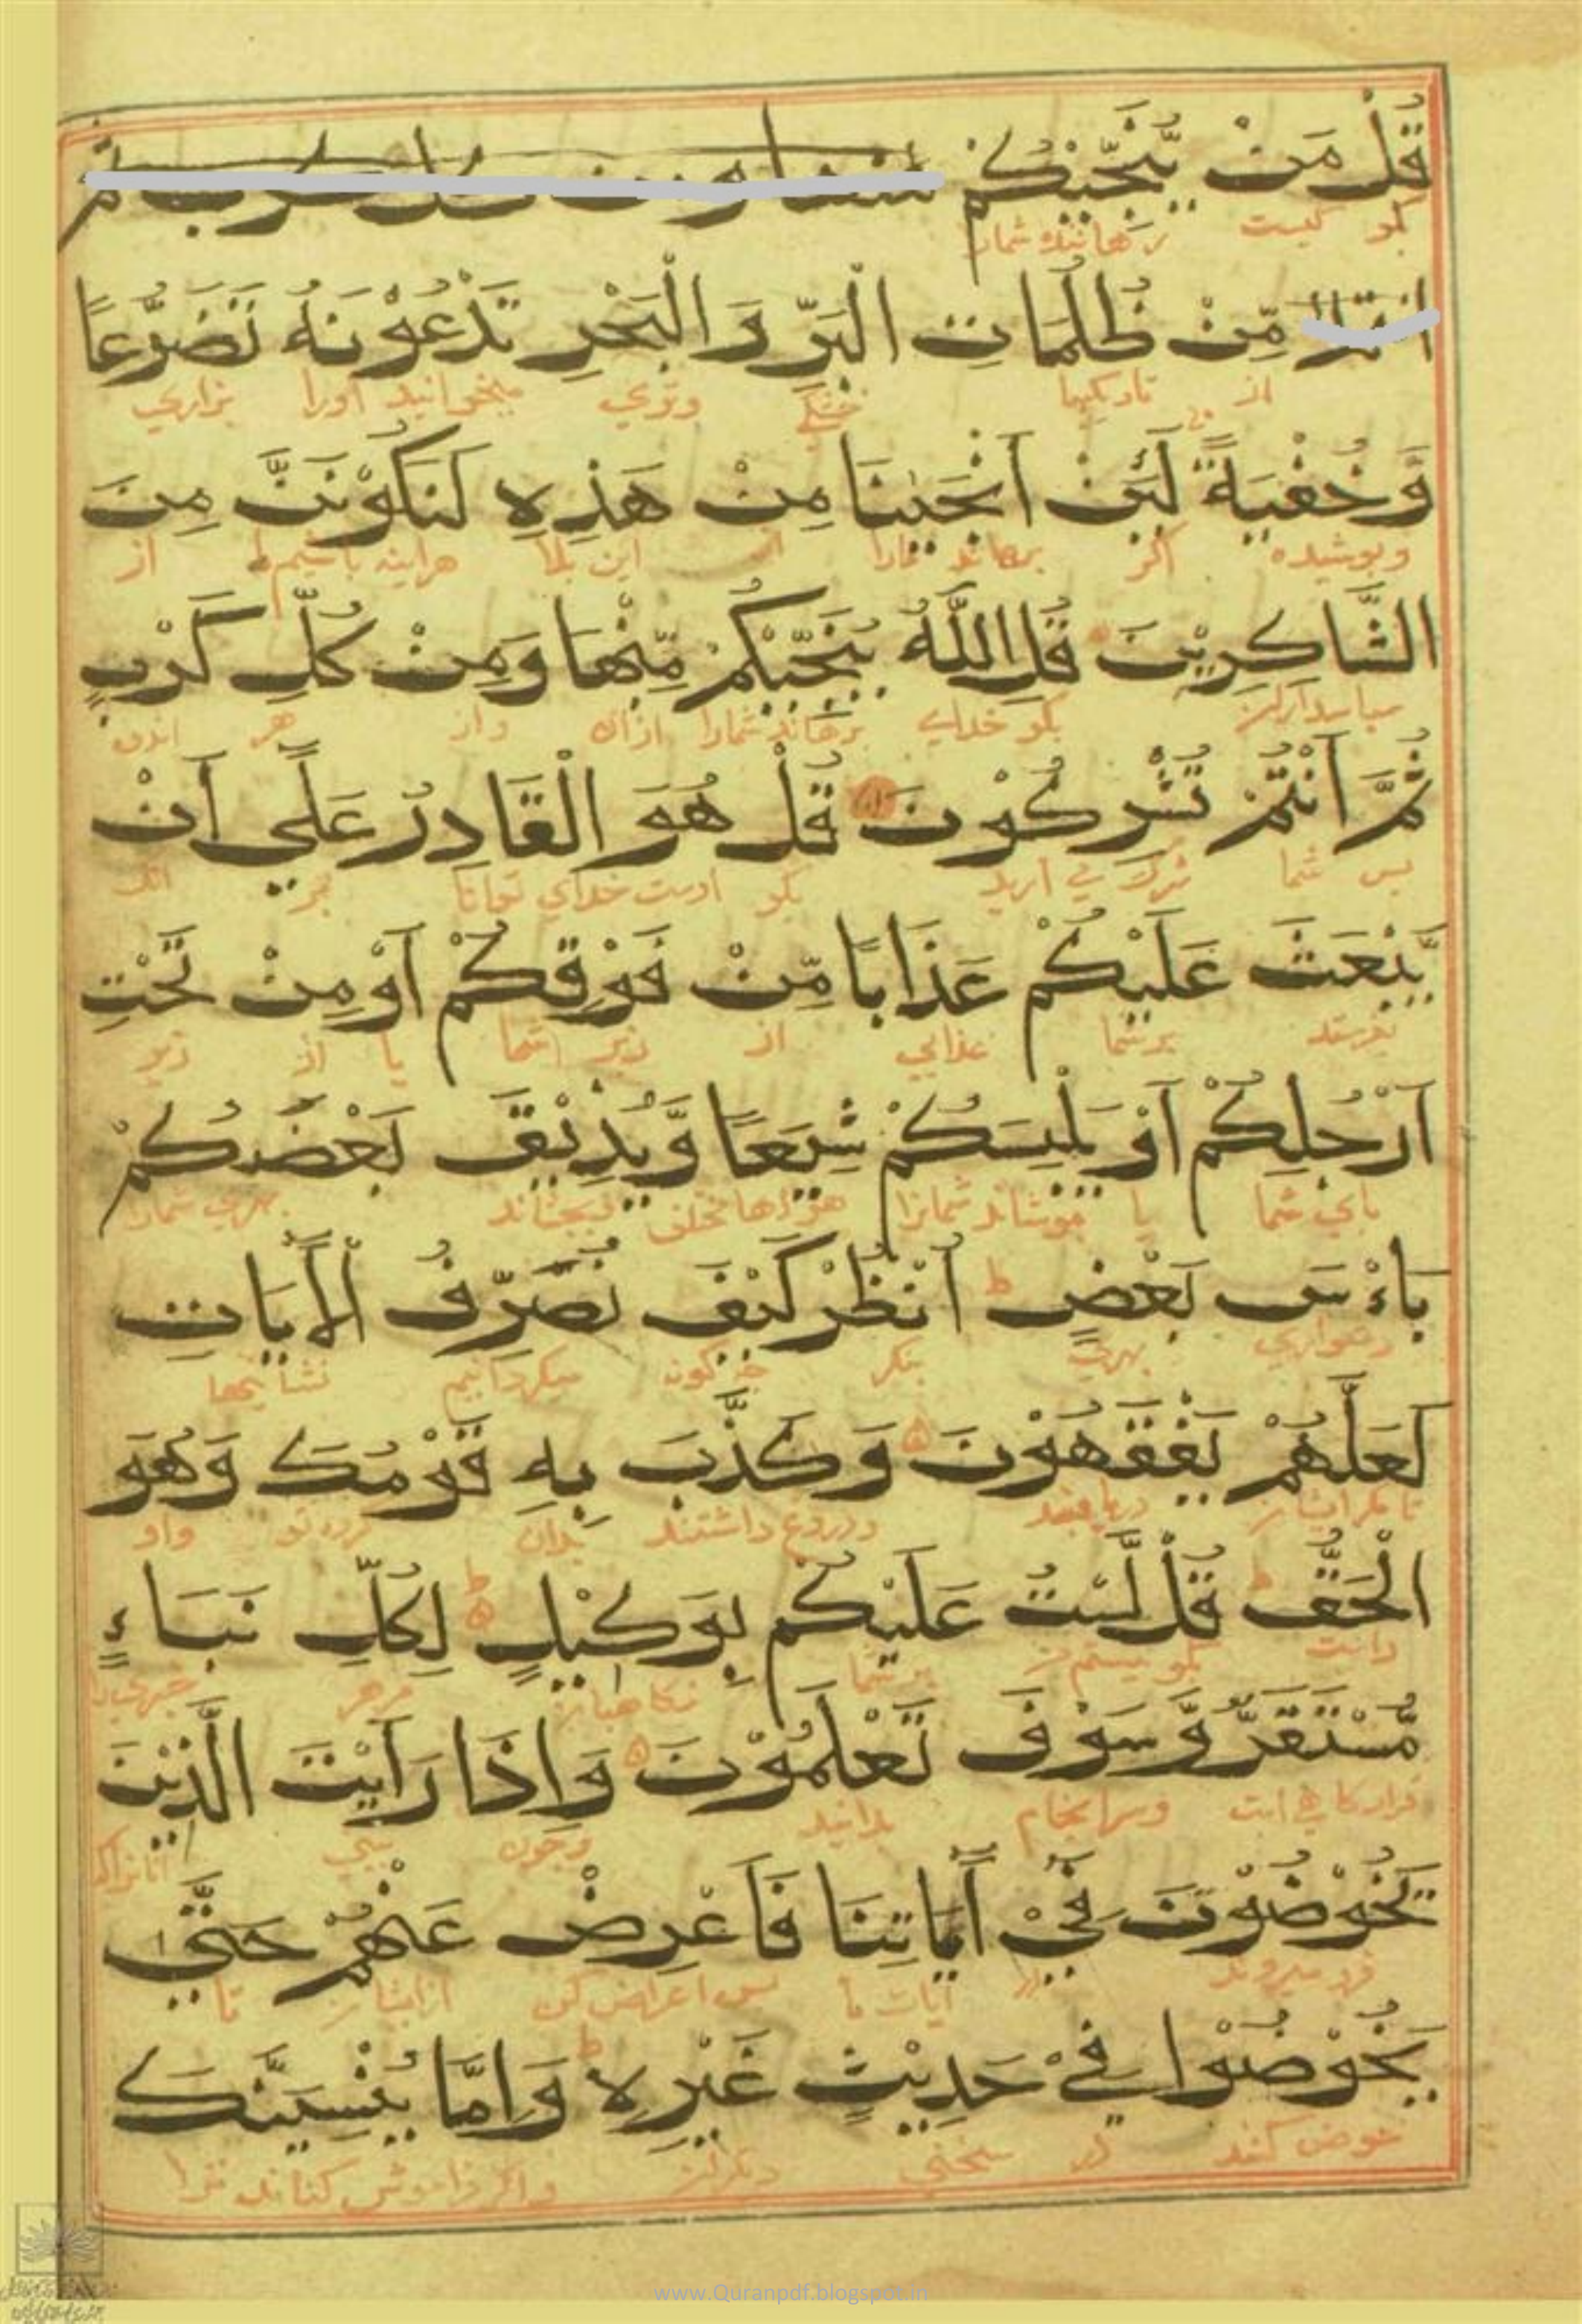 قُلْ مَنْ يُّنَجِّيْكُمْ
بگو کیست برهاننده شمارا
مِّنْ ظُلُمَاتِ الْبَرِّ وَ الْبَحْرِ تَدْعُوْنَهُ تَضَرُّعًا
از تاریکیها خشکی وتری میخوانید اورا بزاری
وَّخُفْيَةً لَئِنْ اَنْجَيْنَا مِنْ هَذِهِ لَنَكُوْنَنَّ مِنَ
وپوشیده اگر برهاند مارا از این بلا هراینه باشیم از
الشَّاكِرِيْنَ قُلِ اللَّهُ يُنَجِّيْكُمْ مِّنْهَا وَمِنْ كُلِّ كَرْبٍ
بگو خدای برهاند شمارا ازان واز هر
ثُمَّ اَنْتُمْ تُشْرِكُوْنَ قُلْ هُوَ الْقَادِرُ عَلَي اَنْ
پس شما شرک می ارید بگو اوست خدای توانا بر انک
يَّبْعَثَ عَلَيْكُمْ عَذَابًا مِّنْ فَوْقِكُمْ اَوْ مِنْ تَحْتِ
بفرستد برشما عذابی از زبر شما یا از زیر
اَرْجُلِكُمْ اَوْ يَلْبِسَكُمْ شِيَعًا وَّيُذِيْقَ بَعْضَكُمْ
پای شما یا بپوشاند شمارا بچشاند بهری شمارا
بَاءْسَ بَعْضٍ ط اُنْظُرْ كَيْفَ نُصَرِّفُ الْاٰيَاتِ
دشواری بهری بنگر چگونه میگردانیم نشانیها
لَعَلَّهُمْ يَفْقَهُوْنَ وَكَذَّبَ بِهِ قَوْمُكَ وَهُوَ
تا مگر ایشان دریابند ودروغ داشتند بدان گروه تو واو
الْحَقُّ قُلْ لَّسْتُ عَلَيْكُمْ بِوَكِيْلٍ لِكُلِّ نَبَاءٍ
بگو نیستم برشما نگاهبان مرهر خبری را
مُّسْتَقَرٌّ وَّسَوْفَ تَعْلَمُوْنَ وَاِذَا رَاَيْتَ الَّذِيْنَ
وسرانجام بدانید وچون بینی انانراکه
يَخُوْضُوْنَ فِيْ اٰيَاتِنَا فَاَعْرِضْ عَنْهُمْ حَتّٰي
در ایات ما پس اعراض کن ازایشان تا
يَخُوْضُوْا فِيْ حَدِيْثٍ غَيْرِهِ ط وَاِمَّا يُنْسِيَنَّكَ
خوض کنند در سخنی واگر فراموش کناند ترا
www.Quranpdf.blogspot.in